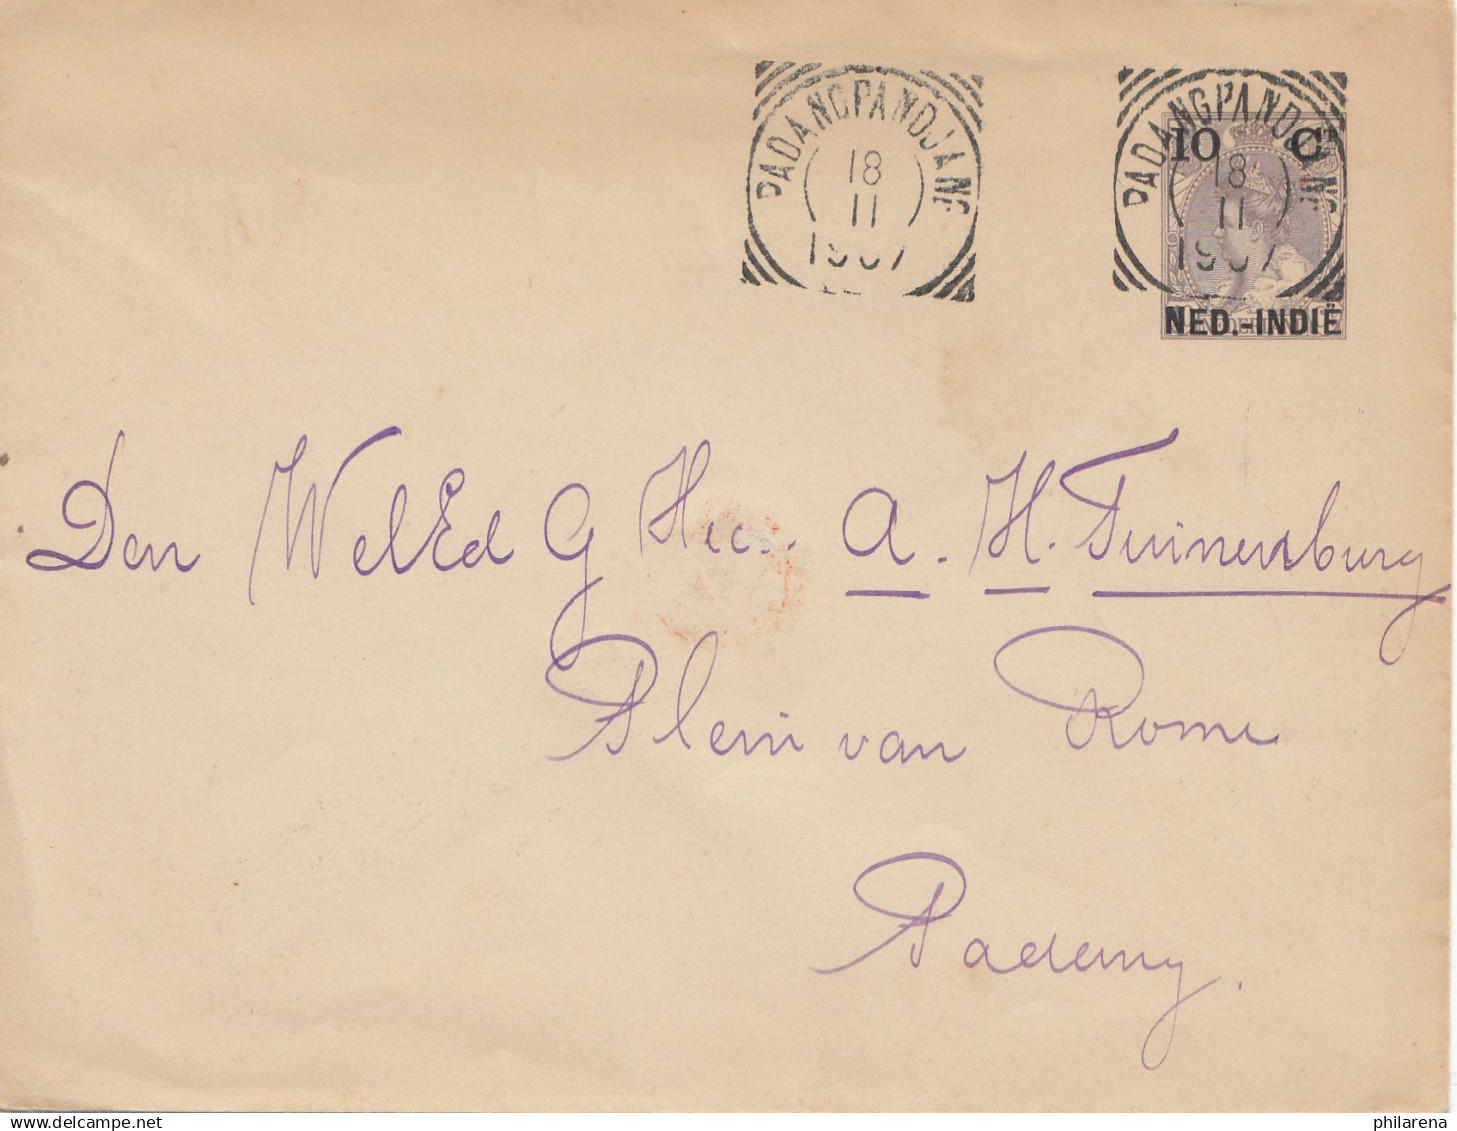 PADANGPANDJANG
18
11
1907
PADANGPANDJANG
18
11
1907
10 Ct
NED.-INDIË
Den WelEd G Heer A. H. Tuinenburg
Plein van Rome
Padang.
philarena.com